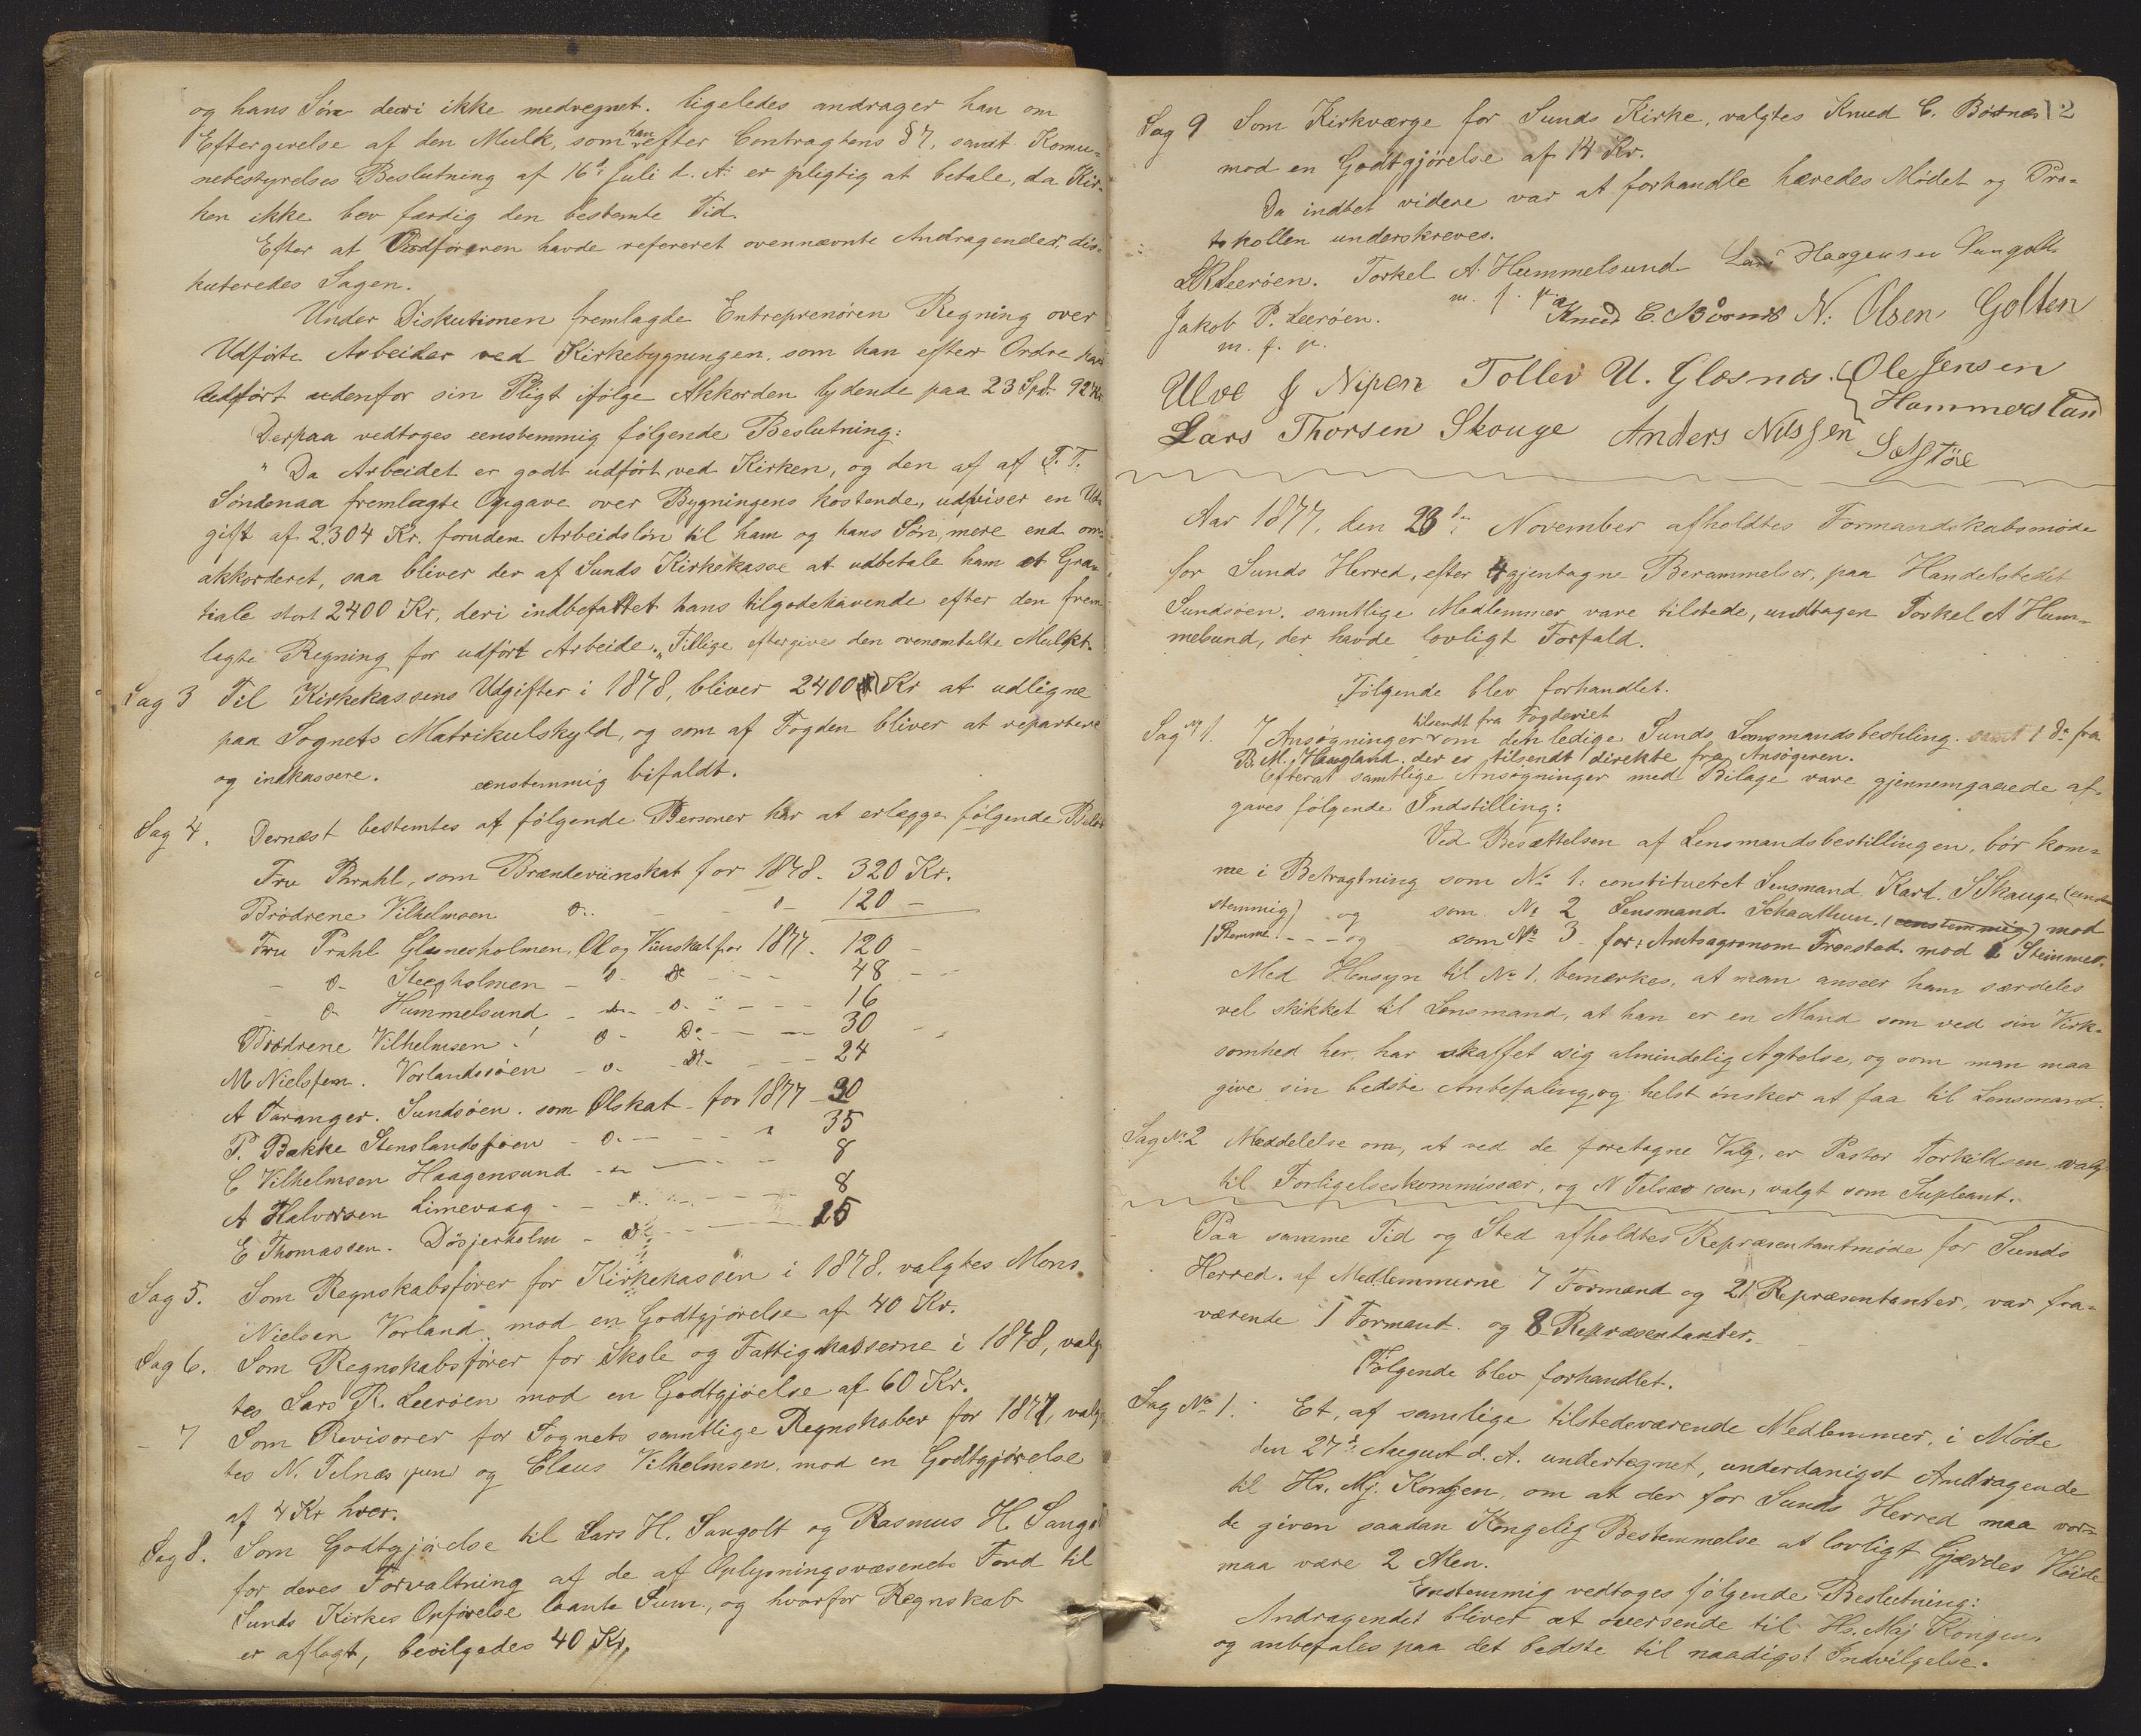 og hans Søn deri ikke medregnet. ligeledes andrager han om
Eftergivelse af den Mulk, som han efter Contragtens § 7, samt Komu-
nebestyrelses Beslutning af 16d Juli d. A: er pligtig at betale, da Kir-
ken ikke blev færdig den bestemte Tid.
Efter at Ordføreren havde refereret ovennævnte Andragender, dis-
kuteredes Sagen.
Under Diskutionen fremlagde Entreprenøren Regning over
Udførte Arbeider ved Kirkebygningen, som han efter Ordre har
udført udenfor sin Pligt ifølge Akkorden lydende paa 23 Spd. 92
Derpaa vedtoges eenstemmig følgende Beslutning:
"Da Arbeidet er godt udført ved Kirken, og den af af T. T.
Søndenaa fremlagte Opgave over Bygningens kostende, udviser en Ud-
gift af 2.304 Kr. foruden Arbeidsløn til ham og hans Søn, mere end om-
akkorderet, saa bliver der af Sunds Kirkekasse at udbetale ham et Gra-
tiale stort 2400 Kr, deri indbefattet hans tilgodehavende efter den frem-
lagte Regning for udført Arbeide." Tillige eftergives den ovenomtalte Mulkt.
Sag 3 Til Kirkekassens Udgifter i 1878, bliver 2400 Kr at udligne
paa Sognets Matrikulskyld, og som af Fogden bliver at repartere
og indkassere. eenstemmig bifaldt.
Sag 4. Dernæst bestemtes at følgende Personer har at erlægge følgende Beløb
Fru Prahl, som Brændeviinskat for 1878. 320 Kr.
Brødrene Vilhelmsen 120 -
Fru Prahl Glesnesholmen, Øl og Viinskat for 1877. 120 -
Steegholmen 48
Hummelsund 16
Brødrene Vilhelmsen 30
M Nielssen. Vorlandsøen 24
A Taranger. Sundsøen. som Ølskat for 1877 30
P. Bakke Stenslandsjøen 35
C Vilhelmsen Haagensund 8
A Halvorsen Limevaag 8
E Thomassen. Døsjerholm 15
Sag 5. Som Regnskabsfører for Kirkekassen i 1878. valgtes Mons
Nielsen Vorland mod en Godtgjørelse af 40 Kr.
Sag 6. Som Regnskabsfører for Skole og Fattigkasserne i 1878, valg
tes Lars R. Leerøen mod en Godtgjøelse af 60 Kr.
- 7 Som Revisorer for Sognets samtlige Regnskaber for 1877, valg
tes N. Telnæs jun og Claus Vilhelmsen, mod en Godtgjørelse
af 4 Kr hver.
Sag 8. Som Godtgjørelse til Lars H. Sangolt og Rasmus H. Sangolt
for deres Forvaltning af de af Oplysningsvæsenets Fond til
Sunds Kirkes Opførelse laante Sum, og hvorfor Regnskab
er aflagt, bevilgedes 40 Kr.
12
Sag 9 Som Kirkværge for Sunds Kirke, valgtes Knud C. Børnæs
mod en Godtgjørelse af 14 Kr.
Da indtet videre var at forhandle hævedes Mødet og Pro-
tokollen underskreves.
LRLeerøen. Torkel A. Hummelsund Lars Haagensen Sangolt
m. f. p.
Jakob P. Leerøen. Knud C. Børnæs N: Olsen Golten
m. f. p.
Ulve J Nipen Tollev U. Glesnæs. Ole Jensen
Hammersland
Lars Thorsen Skouge Anders Nilssen
Sælstöe
Aar 1877, den 23de November afholdtes Formandskabsmøde
for Sunds Herred, efter 4 gjentagne Berammelser, paa Handelstedet
Sundsøen. samtlige Medlemmer vare tilstede, undtagen Torkel A Hum-
melsund, der havde lovligt Forfald.
Følgende blev forhandlet.
Sag No 1. 7 Ansøgninger tilsendt fra Fogderiet om den ledige Sunds Lensmandsbestilling. samt 1 do fra
B. M. Haugland. der er tilsendt direkte fra Ansøgeren.
Efterat samtlige Ansøgninger med Bilage vare gjennemgaaede af-
gaves følgende Indstilling:
Ved Besættelsen af Lensmandsbestillingen, bør kom-
me i Betragtning som No 1: constitueret Lensmand Karl. S Skauge (een-
stemmig) og som No 2 Lensmand Schaathun, (eenstemmig) mod
1 Stemme og som No 3 for: Amtsagronom Troestad mod Stemmer.
Med Hensyn til No 1. bemærkes, at man anseer ham særdeles
vel skikket til Lensmand, at han er en Mand som ved sin Virk-
somhed her. har skaffet sig almindelig Agtelse, og som man maa
give sin bedste Anbefaling, og helst ønsker at faa til Lensmand.
Sag No: 2 Meddelelse om, at ved de foretagne Valg, er Pastor Torkildsen valg
til Forligelseskommissær, og N Telnæs sen, valgt som Supleant.
Paa samme Tid og Sted afholdtes Repræsentantmøde for Sunds
Herred. af Medlemmerne 7 Formænd og 21 Repræsentanter, var fra-
værende 1 Formand og 8 Repræsentanter.
Følgende blev forhandlet.
Sag No 1. Et, af samlige tilstedeværende Medlemmer, i Møde
den 27d: August d. A. undertegnet, underdanigst Andragende
til Hs. Mj. Kongen, om at der for Sunds Herred maa vor-
de given saadan Kongelig Bestemmelse at lovligt Gjærdes Høide
maa være 2 Alen.
Enstemmig vedtoges følgende Beslutning:
Andragendet bliver at oversende til Hs. Maj Kongen,
og anbefales paa det bedste til naadigst Indvilgelse.